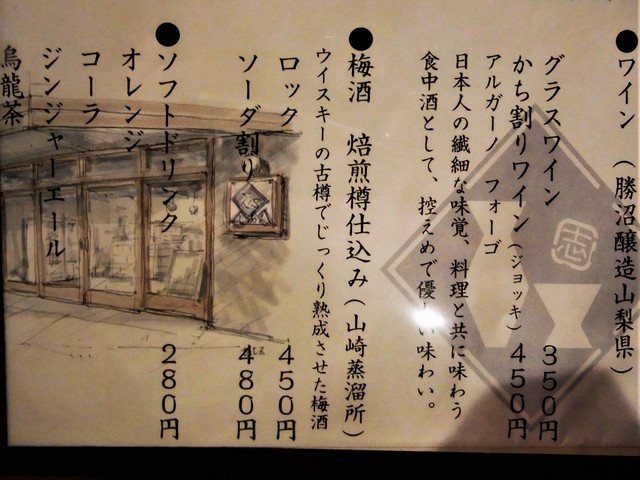 ●ワイン（勝沼醸造山梨県）
グラスワイン 350円
かち割りワイン（ジョッキ）450円
アルガーノ フォーゴ
日本人の繊細な味覚、料理と共に味わう
食中酒として、控えめで優しい味わい。
●梅酒 焙煎樽仕込み（山崎蒸溜所）
ウイスキーの古樽でじっくり熟成させた梅酒
ロック 450円
ソーダ割り 480円
●ソフトドリンク 280円
オレンジ
コーラ
ジンジャーエール
烏龍茶
志